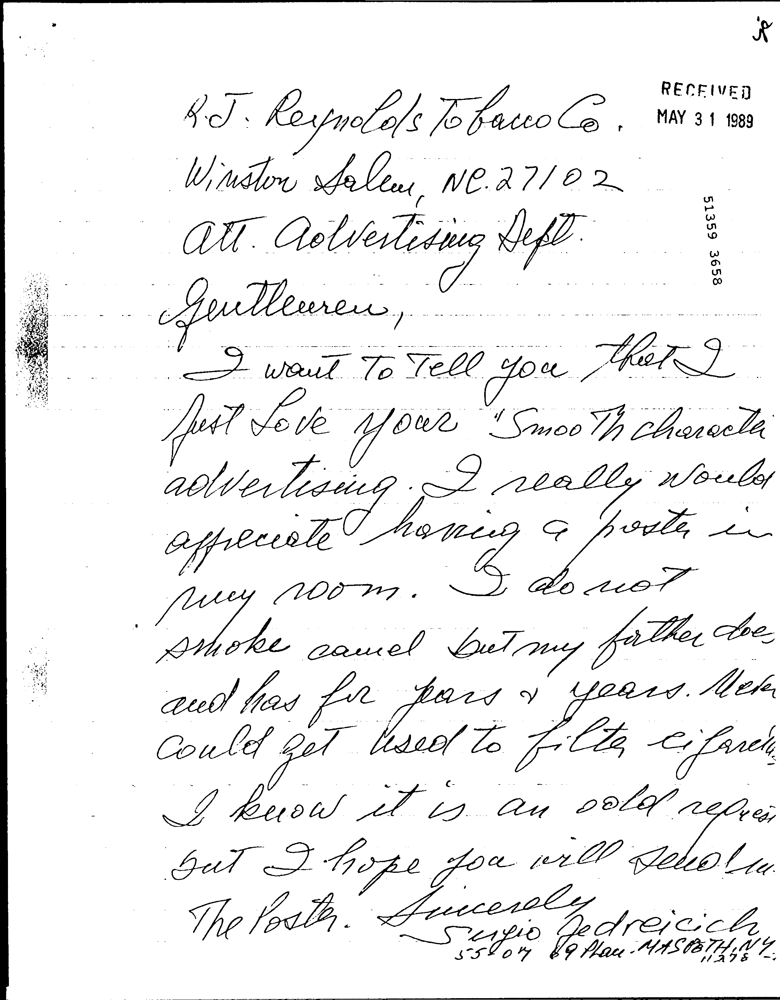 R.J. Reynolds Tobacco Co.
RECEIVED
MAY 31 1989
Winston Salem, NC. 27102
51359 3658
Att. Advertising Dept.
Gentlemen,
I want To Tell you that I
just Love your "Smooth character
advertising. I really would
appreciate having a poster in
my room. I do not
smoke camel but my father does
and has for years & years. Never
could get used to filter cigarettes
I know it is an odd request
but I hope you will send me
The Poster. Sincerely
Sergio Jedreicich
55-07 69 Place. MASPETH, NY
11378